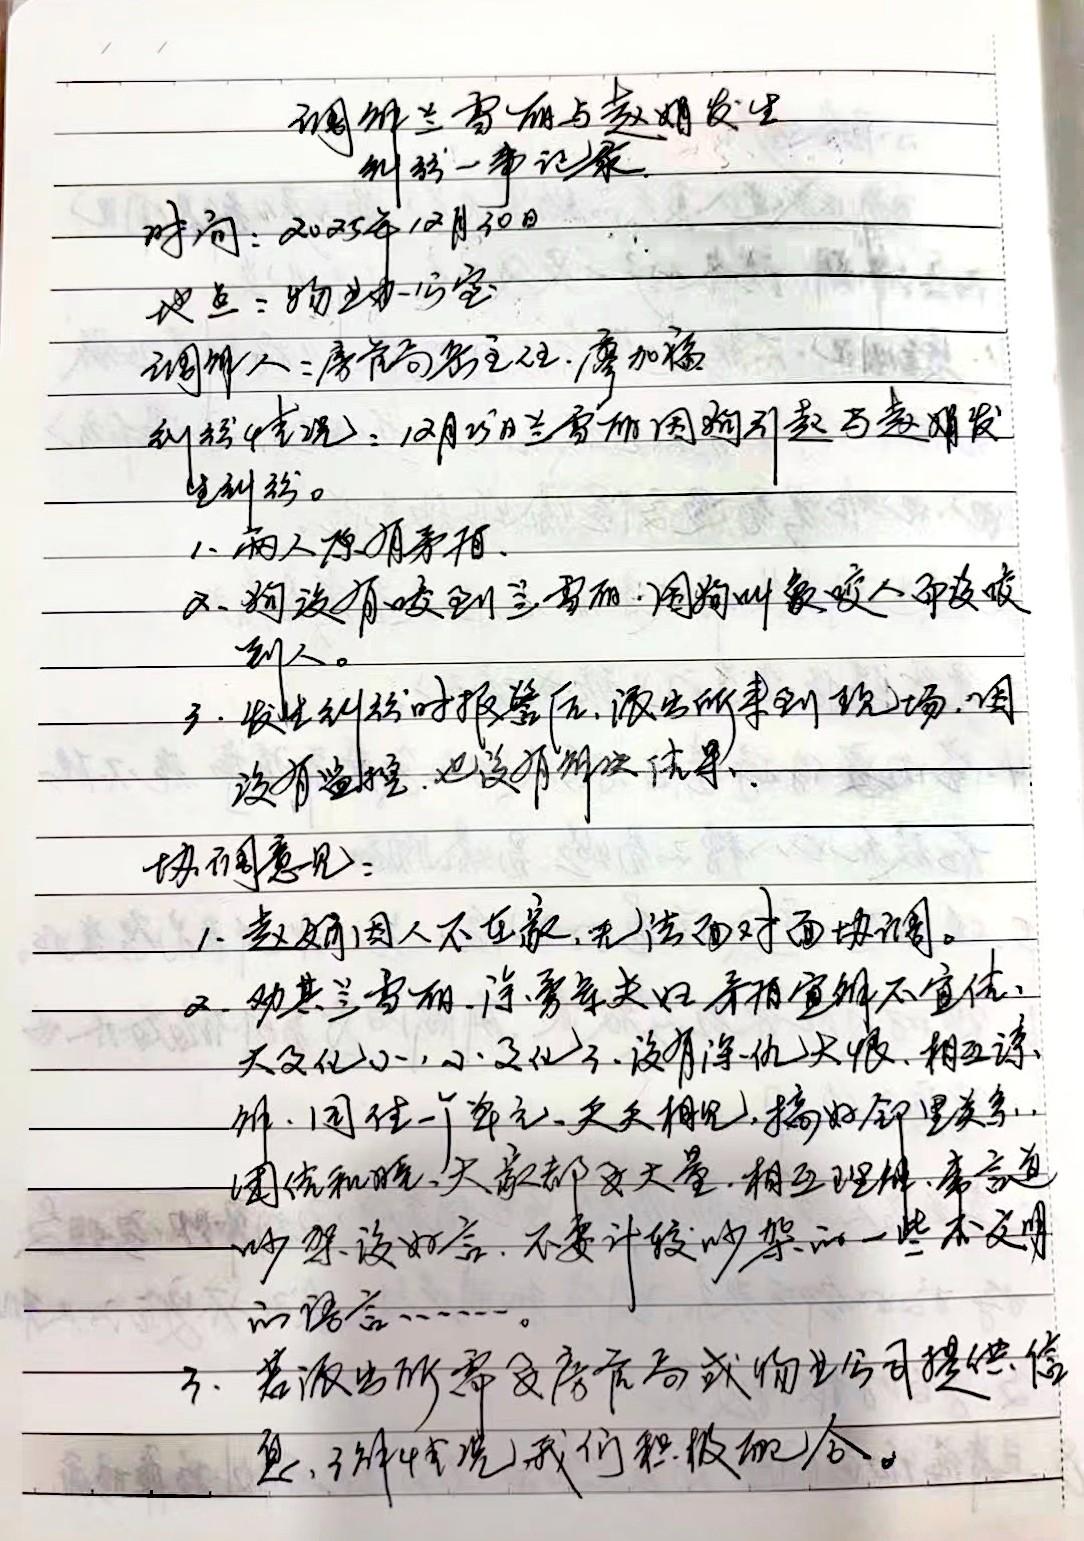 调解兰雪丽与赵娟发生
纠纷一事记录.
时间：2025年12月30日
地点：物业办公室
调解人：房产局岳主任.廖加福
纠纷情况：12月25日兰雪丽因狗引起与赵娟发
生纠纷。
1、两人原有矛盾.
2、狗没有咬到兰雪丽.因狗叫象咬人即没咬
到人。
3.发生纠纷时报警后、派出所来到现场.因
没有监控.也没有解决结果.
协调意见：
1.赵娟因人不在家、无法面对面协调。
2、劝其兰雪丽.涂勇军夫妇矛盾宜解不宜结、
大文化小、小文化了、没有深仇大恨、相互谅
解.同住一个单元、天天相见、搞好邻里关系、
团结和睦、大家都要大量.相互理解.常言道
吵架没好言.不要计较吵架的一些不文明
的语言……。
3.若派出所需要房产局或物业公司提供信
息、了解情况我们积极配合。